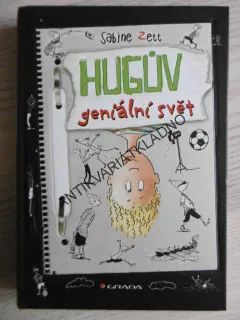 Sabine Zett
HUGŮV
geniální svět
ANTIKVARIATKLADNO
GRADA